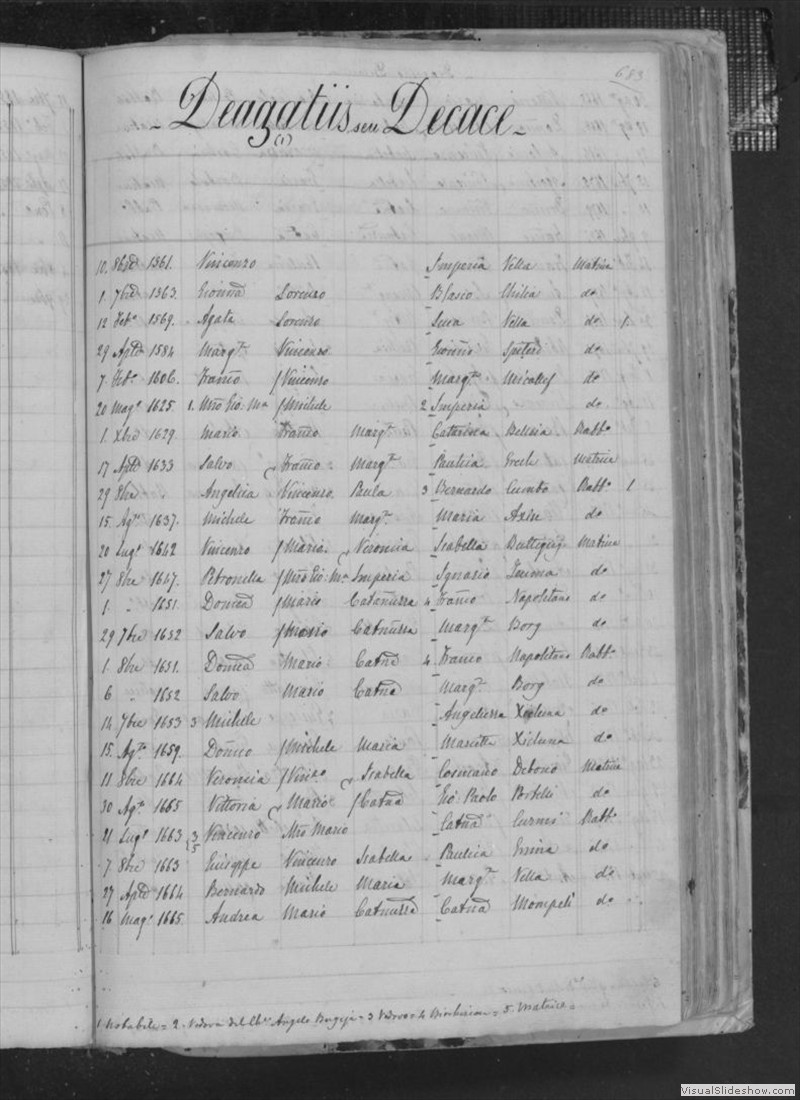 683
Deagatiis seu Decace
(1)
10. 8bre 1561. Vincenzo Imperia Vella Matrice
1. 7bre 1563. Lorenzo Blasio do
12 Feb.o 1569. Agata Lorenzo Luca Vella do 1.
29 Aple 1584 Margta Vincenzo do
7 Feb.o 1606. Franco Vincenzo Margta Micallef do
20 Mago 1625. 1. Mro Gio. Ma Michele 2 Imperia do
1. xbre 1629 Mario Franco Margta Catarina Rabto
17 Aple 1633 Salvo Franco Margta Paulica Ereele Matrice
29 8bre Angelica Vincenzo Paula 3 Bernardo Cumbo Rabto 1
15 Agto 1637. Michele Franco Margta Maria Axiq do
20 Lugo 1642 Vincenzo Mario Veronica Isabella Buttigieg Matrice
27 8bre 1647. Petronella Mro Gio: Ma Imperia Ignazio do
1. " 1651. Domca Mario 4 Franco Napolitano do
29 7bre 1652 Salvo Mario Margta Borg do
1 8bre 1651. Domca Mario Catna 4. Franco Napolitano Rabto
6 " 1652 Salvo Mario Catna Margta Borg do
14 7bre 1653 3 Michele Angelica Xicluna do
15. Agto 1659. Domco Michele Maria Marietta Xicluna do
11 8bre 1664 Veronica Vinzo Isabella Cosmano Debono Matrice
30 Agto 1665 Vittoria Mario Catna Gio Paolo Portelli do
21 Lugo 1663 3 5 Vincenzo Mro Mario Catna Curmi Rabto
7 8bre 1663 Giuseppe Vincenzo Isabella Paulica do
27 Aple 1664 Bernardo Michele Maria Margta Vella do
16 Mago 1665. Andrea Mario Catna Mompeli do
1 Notabile = 2. Vedova del Angelo = 3 Vedovo = 4 = 5. Matrice =
VisualSlideshow.com